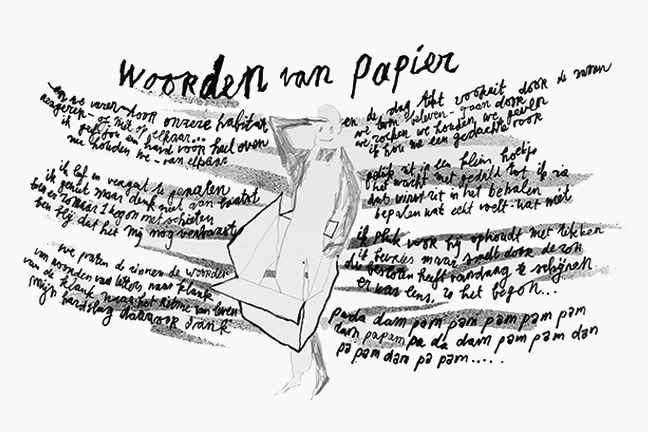 woorden van papier
en we varen door onzere habitat
reageren - of niet op elkaar...
ik geef jou een hand voor heel even
nu houden we - van elkaar
ik lief en vergat te genieten
ik geniet maar denk niet aan laatst
ben er zomaar 1 begon met schieten
ben blij dat het mij nog verbaast
we praten de zinnen de woorden
van woorden van letters naar klank
van de klank naar het ritme van leven
mijn hartslag daarvoor dank
en de dag tikt vooruit door de
we zoeken we houden we geven
ik hou me een gedachte voor
geluk zit in een klein hoekje
het wacht met geduld tot ik zie
dat winst zit in het bepalen
bepalen wat echt voelt - wat niet
ik pluk voor hij ophoudt met tikken
ik bevries maar smelt door de zon
die besloten heeft vandaag te schijnen
er was eens, zo het begon...
pada dam pam pam pam pam pam
dam papam pa da dam pam pam dam
pa pam dam pa pam.....